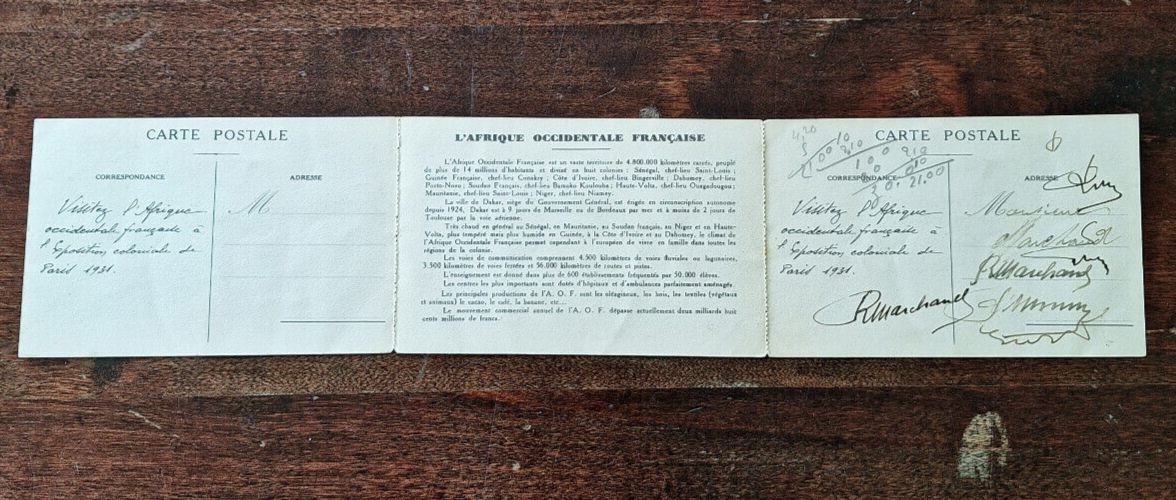 CARTE POSTALE
CORRESPONDANCE
ADRESSE
Visitez l'Afrique
occidentale française à
l'Exposition coloniale de
Paris 1931.
M
L'AFRIQUE OCCIDENTALE FRANÇAISE
L'Afrique Occidentale Française est un vaste territoire de 4.800.000 kilomètres carrés, peuplé
de plus de 14 millions d'habitants et divisé en huit colonies : Sénégal, chef-lieu Saint-Louis ;
Guinée Française, chef-lieu Conakry ; Côte d'Ivoire, chef-lieu Bingerville ; Dahomey, chef-lieu
Porto-Novo ; Soudan Français, chef-lieu Bamako Koulouba ; Haute-Volta, chef-lieu Ouagadougou ;
Mauritanie, chef-lieu Saint-Louis ; Niger, chef-lieu Niamey.
La ville de Dakar, siège du Gouvernement Général, est érigée en circonscription autonome
depuis 1924, Dakar est à 9 jours de Marseille ou de Bordeaux par mer et à moins de 2 jours de
Toulouse par la voie aérienne.
Très chaud en général au Sénégal, en Mauritanie, au Soudan français, au Niger et en Haute-
Volta, plus tempéré mais plus humide en Guinée, à la Côte d'Ivoire et au Dahomey, le climat de
l'Afrique Occidentale Française permet cependant à l'européen de vivre en famille dans toutes les
régions de la colonie.
Les voies de communication comprennent 4.300 kilomètres de voies fluviales ou lagunaires,
3.500 kilomètres de voies ferrées et 56.000 kilomètres de routes et pistes.
L'enseignement est donné dans plus de 600 établissements fréquentés par 50.000 élèves.
Les centres les plus importants sont dotés d'hôpitaux et d'ambulances parfaitement aménagés.
Les principales productions de l'A. O. F. sont les oléagineux, les bois, les textiles (végétaux
et animaux) le cacao, le café, la banane, etc...
Le mouvement commercial annuel de l'A. O. F. dépasse actuellement deux milliards huit
cents millions de francs.
CARTE POSTALE
CORRESPONDANCE
ADRESSE
Visitez l'Afrique
occidentale française à
l'Exposition coloniale de
Paris 1931.
Monsieur
Marchand
RMarchand
RMarchand